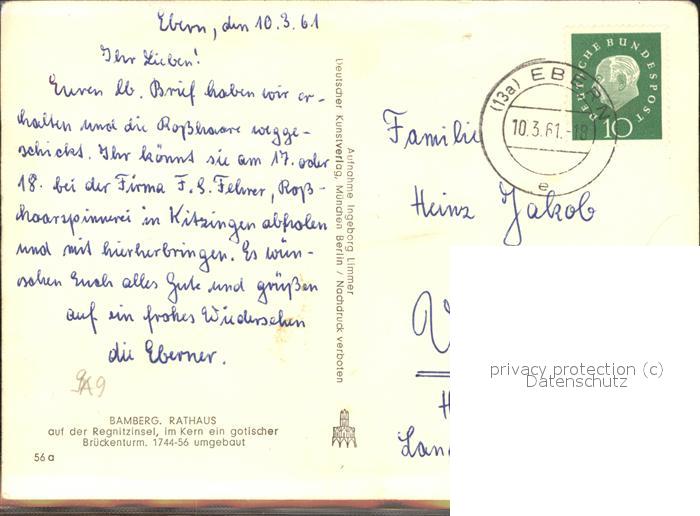 Ebern, den 10.3.61
Ihr Lieben!
Euren lb. Brief haben wir er-
halten und die Roßhaare wegge-
schickt. Ihr könnt sie am 17. oder
18. bei der Firma F. S. Fehrer, Roß-
haarspinnerei in Kitzingen abholen
und mit hierherbringen. Es wün-
schen Euch alles Gute und grüßen
auf ein frohes Wiedersehen
die Eberner.
BAMBERG. RATHAUS
auf der Regnitzinsel, im Kern ein gotischer
Brückenturm. 1744-56 umgebaut
56 a
Aufnahme Ingeborg Limmer
Deutscher Kunstverlag, München Berlin / Nachdruck verboten
DEUTSCHE BUNDESPOST
10
(13a) EBERN
10.3.61.-18
e
Familie
Heinz Jakob
privacy protection (c)
Datenschutz